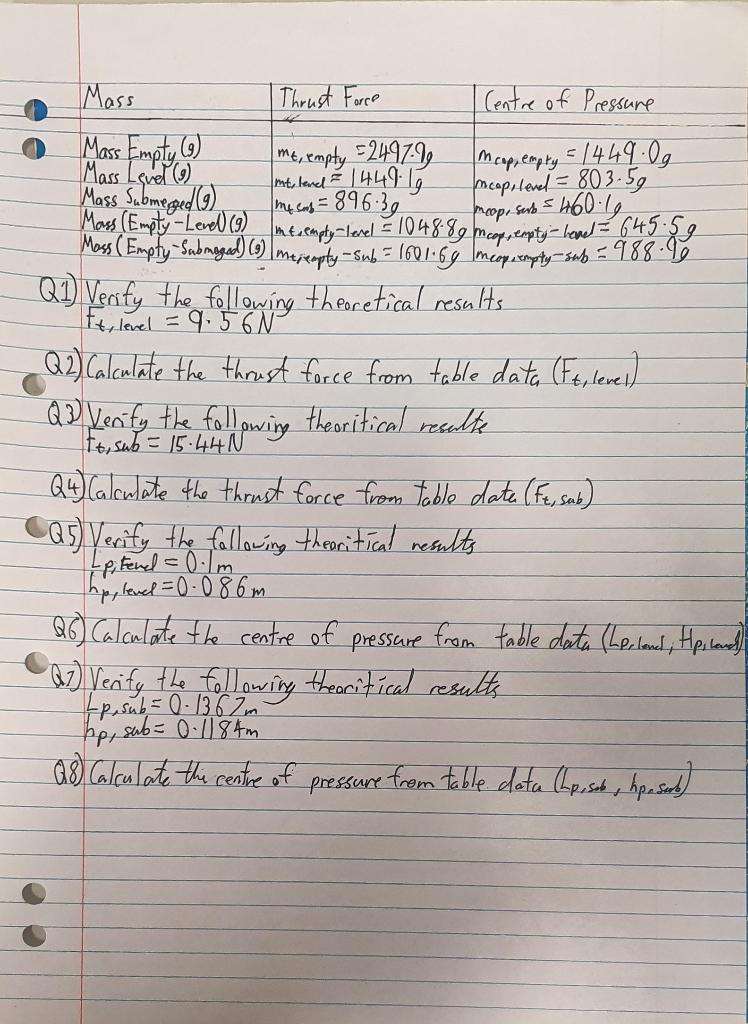 Mass Thrust Force Centre of Pressure
Mass Empty (g) mt, empty = 2497.9g mcop, empty = 1449.0g
Mass Level (g) mt, level = 1449.1g mcop, level = 803.5g
Mass Submerged (g) mt sub = 896.3g mcop, sub = 460.1g
Mass (Empty-Level) (g) mt, empty-level = 1048.8g mcop, empty-level = 645.5g
Mass (Empty-Submerged) (g) mt, empty-sub = 1601.6g mcop, empty-sub = 988.9g
Q1) Verify the following theoretical results
Ft, level = 9.56N
Q2) Calculate the thrust force from table data (Ft, level)
Q3) Verify the following theoritical results
Ft, sub = 15.44N
Q4) Calculate the thrust force from table data (Ft, sub)
Q5) Verify the following theoritical results
Lp, level = 0.1m
hp, level = 0.086m
Q6) Calculate the centre of pressure from table data (Lp, level, Hp, level)
Q7) Verify the following theoritical results
Lp, sub = 0.1367m
hp, sub = 0.1184m
Q8) Calculate the centre of pressure from table data (Lp, sub, hp, sub)